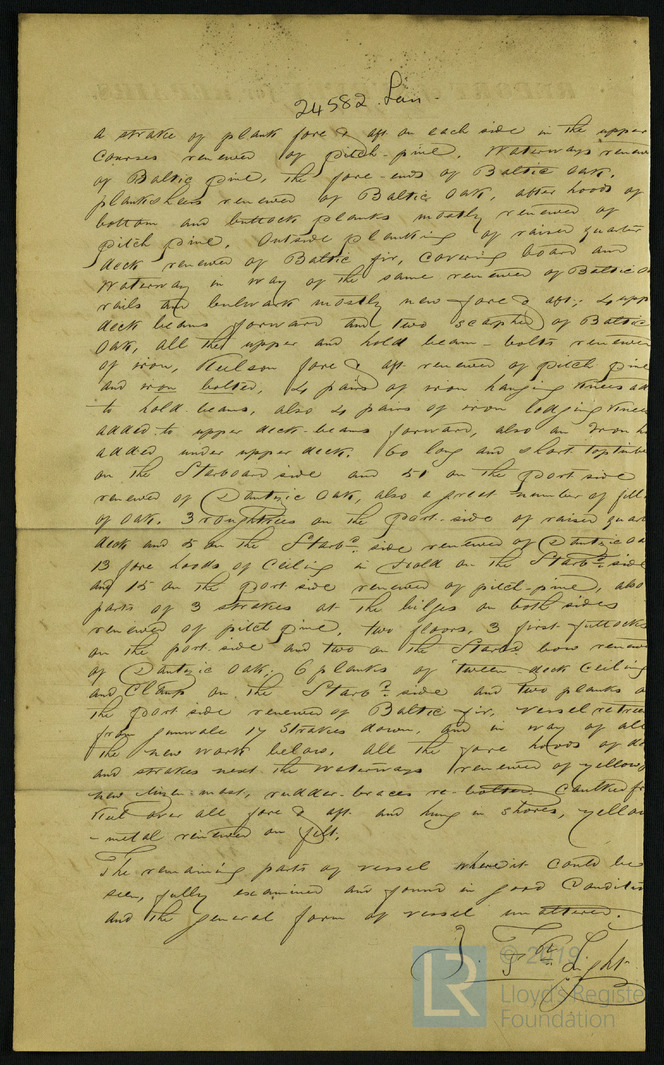 24582 Lon
a strake of plank fore & aft on each side in the upper
Courses renewed of pitch-pine, Waterways renew
of Baltic pine, the fore-ends of Baltic Oak,
planksheers renewed of Baltic Oak, after hoods of
bottom and buttock planks mostly renewed of
pitch pine. Outside planking of raised quarter
deck renewed of Baltic fir, Covering board and
Waterway in way of the same renewed of Baltic O
rails and bulwark mostly new fore & aft; 4 upp
deck beams forward and two scarphed of Baltic
Oak, all the upper and hold beam-bolts renewed
of iron, Keelson fore & aft renewed of pitch pine
and iron bolted, 4 pairs of iron hanging knees ad
to hold-beams, also 4 pairs of iron lodging knees
added to upper deck-beams forward, also an Iron
added under upper deck. 60 long and short toptimb
on the Starboard side and 51 on the port side
renewed of Dantzic Oak, also a great number of fill
of Oak. 3 roughtrees on the port-side of raised quar
deck and 5 on the Starbd. side renewed of Dantzic Oa
13 fore hoods of Ceiling in Hold on the Starbd. side
and 15 on the port side renewed of pitch-pine, also
parts of 3 strakes at the bilges on both sides
renewed of pitch pine, two floors, 3 first futtocks
on the port side and two on the Starbd bow renew
of Dantzic Oak. 6 planks of 'tween-deck Ceiling
and Clamp on the Starbd. side and two planks o
the port side renewed of Baltic fir, vessel retree
from gunwale 17 strakes down, and in way of all
the new work below. All the fore hoods of de
and strakes next the Waterways renewed of yellow
new Mizen-mast, rudder-braces re-bolted, Caulked fr
Keel over all fore & aft and hung in shores, yellow
-metal renewed on felt.
The remaining parts of vessel where it could be
seen, fully examined and found in good Conditio
and the general form of vessel unaltered.
Light
LR
© 2019
Lloyd's Register
Foundation